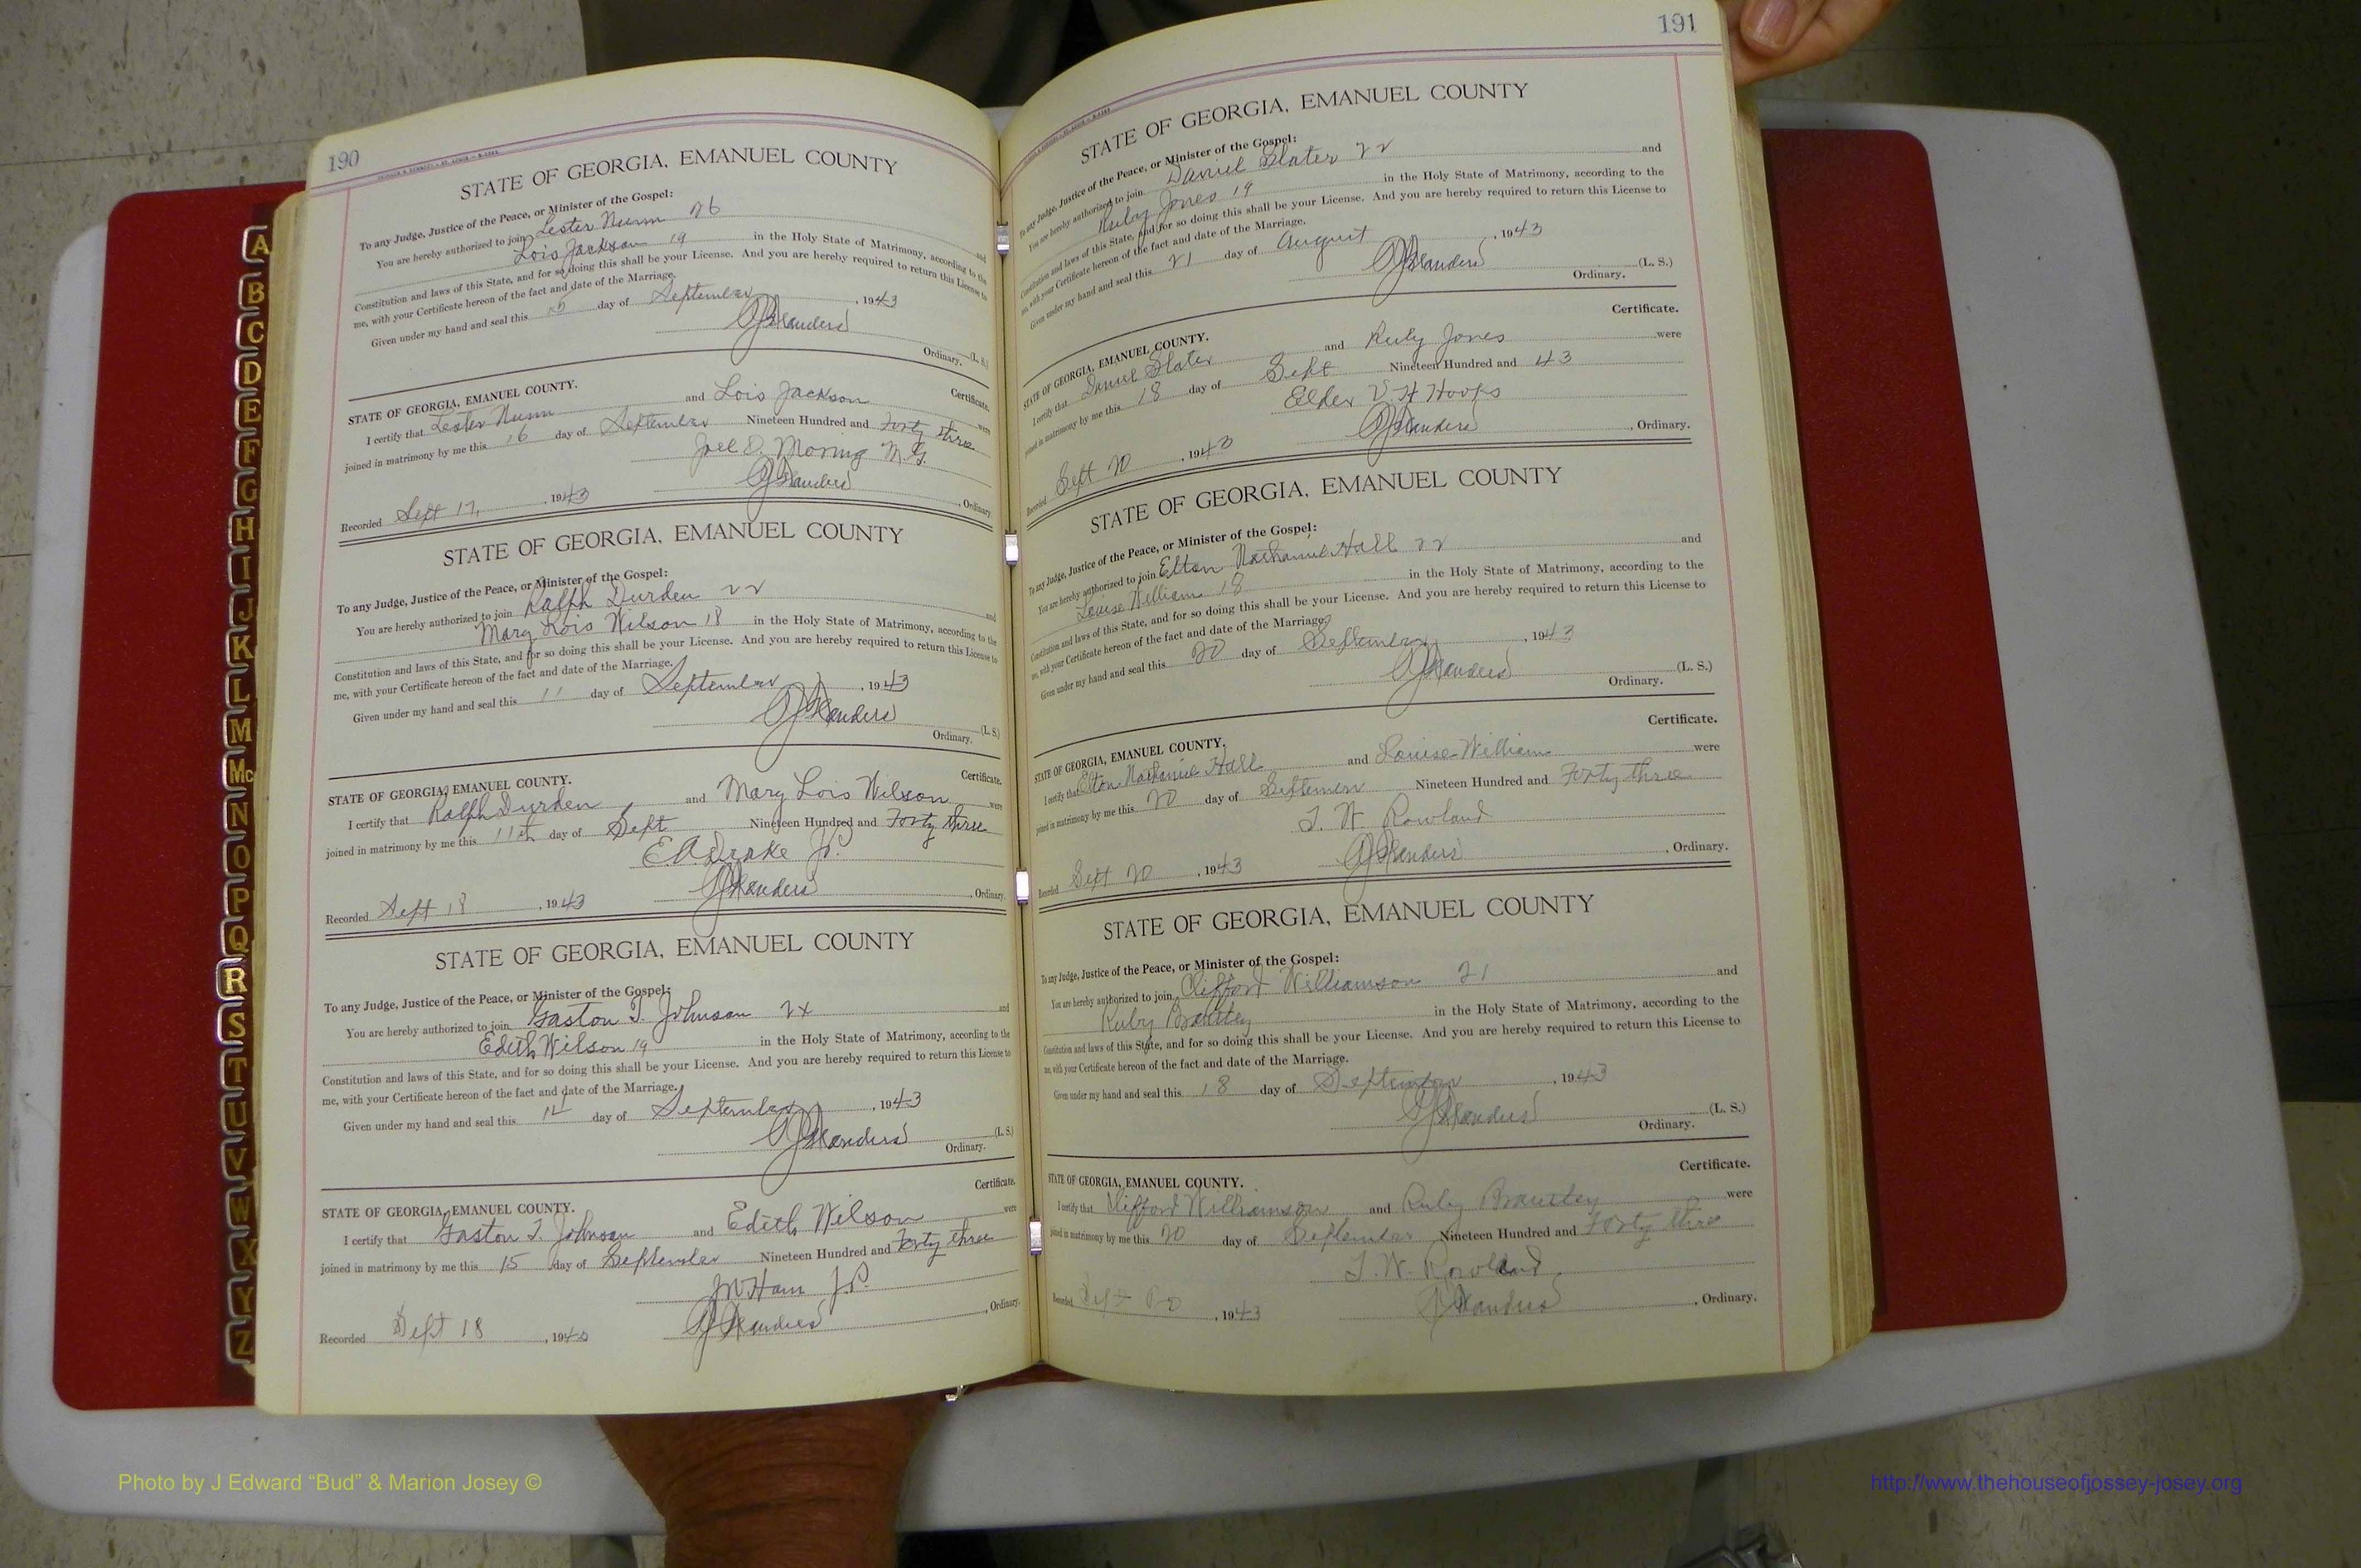 190
STATE OF GEORGIA, EMANUEL COUNTY
To any Judge, Justice of the Peace, or Minister of the Gospel:
You are hereby authorized to join Lester Nunn 26 and
Lois Jackson 19 in the Holy State of Matrimony, according to the
Constitution and laws of this State, and for so doing this shall be your License. And you are hereby required to return this License to
me, with your Certificate hereon of the fact and date of the Marriage.
Given under my hand and seal this 15 day of September, 1943
(L. S.)
Ordinary.
Certificate.
STATE OF GEORGIA, EMANUEL COUNTY.
I certify that Lester Nunn and Lois Jackson were
joined in matrimony by me this 16 day of September Nineteen Hundred and Forty three
Joel D. Moring M. G.
Recorded Sept 17, 1943 , Ordinary.
STATE OF GEORGIA, EMANUEL COUNTY
To any Judge, Justice of the Peace, or Minister of the Gospel:
You are hereby authorized to join Ralph Durden 22 and
Mary Lois Wilson 18 in the Holy State of Matrimony, according to the
Constitution and laws of this State, and for so doing this shall be your License. And you are hereby required to return this License to
me, with your Certificate hereon of the fact and date of the Marriage.
Given under my hand and seal this 11 day of September, 1943
(L. S.)
Ordinary.
Certificate.
STATE OF GEORGIA, EMANUEL COUNTY.
I certify that Ralph Durden and Mary Lois Wilson were
joined in matrimony by me this 11th day of Sept Nineteen Hundred and Forty three
E A Drake J.P.
Recorded Sept 18, 1943 , Ordinary.
STATE OF GEORGIA, EMANUEL COUNTY
To any Judge, Justice of the Peace, or Minister of the Gospel:
You are hereby authorized to join Gaston T. Johnson 24 and
Edith Wilson 19 in the Holy State of Matrimony, according to the
Constitution and laws of this State, and for so doing this shall be your License. And you are hereby required to return this License to
me, with your Certificate hereon of the fact and date of the Marriage.
Given under my hand and seal this 14 day of September, 1943
(L. S.)
Ordinary.
Certificate.
STATE OF GEORGIA, EMANUEL COUNTY.
I certify that Gaston T. Johnson and Edith Wilson were
joined in matrimony by me this 15 day of September Nineteen Hundred and Forty three
J W Ham J.P.
Recorded Sept 18, 194 , Ordinary.
191
STATE OF GEORGIA, EMANUEL COUNTY
To any Judge, Justice of the Peace, or Minister of the Gospel:
You are hereby authorized to join Daniel Slater 22 and
Ruby Jones 19 in the Holy State of Matrimony, according to the
Constitution and laws of this State, and for so doing this shall be your License. And you are hereby required to return this License to
me, with your Certificate hereon of the fact and date of the Marriage.
Given under my hand and seal this 21 day of August, 1943
(L. S.)
Ordinary.
Certificate.
STATE OF GEORGIA, EMANUEL COUNTY.
I certify that Daniel Slater and Ruby Jones were
joined in matrimony by me this 18 day of Sept Nineteen Hundred and 43
Elder V. H Hooks
Recorded Sept 20, 1943 , Ordinary.
STATE OF GEORGIA, EMANUEL COUNTY
To any Judge, Justice of the Peace, or Minister of the Gospel:
You are hereby authorized to join Elton Nathaniel Hall 22 and
Louise William 18 in the Holy State of Matrimony, according to the
Constitution and laws of this State, and for so doing this shall be your License. And you are hereby required to return this License to
me, with your Certificate hereon of the fact and date of the Marriage.
Given under my hand and seal this 20 day of September, 1943
(L. S.)
Ordinary.
Certificate.
STATE OF GEORGIA, EMANUEL COUNTY.
I certify that Elton Nathaniel Hall and Louise William were
joined in matrimony by me this 20 day of Nineteen Hundred and Forty three
T. W. Rowland
Recorded Sept 20, 1943 , Ordinary.
STATE OF GEORGIA, EMANUEL COUNTY
To any Judge, Justice of the Peace, or Minister of the Gospel:
You are hereby authorized to join Clifford Williamson 21 and
Ruby in the Holy State of Matrimony, according to the
Constitution and laws of this State, and for so doing this shall be your License. And you are hereby required to return this License to
me, with your Certificate hereon of the fact and date of the Marriage.
Given under my hand and seal this 18 day of September, 1943
(L. S.)
Ordinary.
Certificate.
STATE OF GEORGIA, EMANUEL COUNTY.
I certify that Clifford Williamson and Ruby were
joined in matrimony by me this 20 day of September Nineteen Hundred and Forty three
T. W. Rowland
Recorded Sept 20, 1943 , Ordinary.
A
B
C
D
E
F
G
H
I
J
K
L
M
Mc
N
O
P
Q
R
S
T
U
V
W
X
Y
Z
Photo by J Edward “Bud” & Marion Josey ©
http://www.thehouseofjossey-josey.org